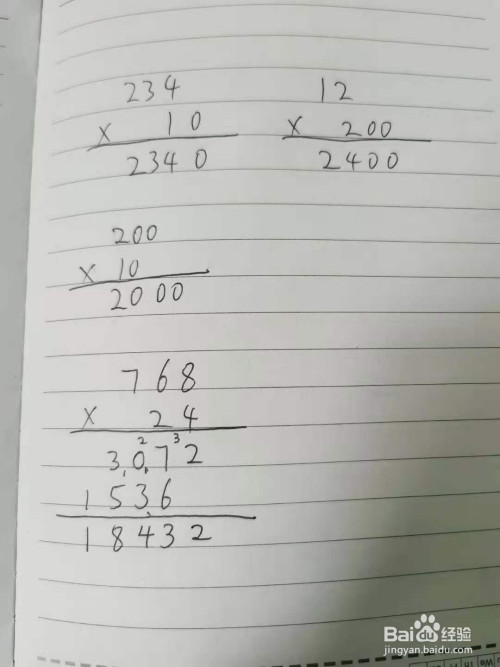 234
× 10
2340
12
× 200
2400
200
× 10
2000
768
× 24
3072
2 3
1536
18432
Baidu 经验
jingyan.baidu.com